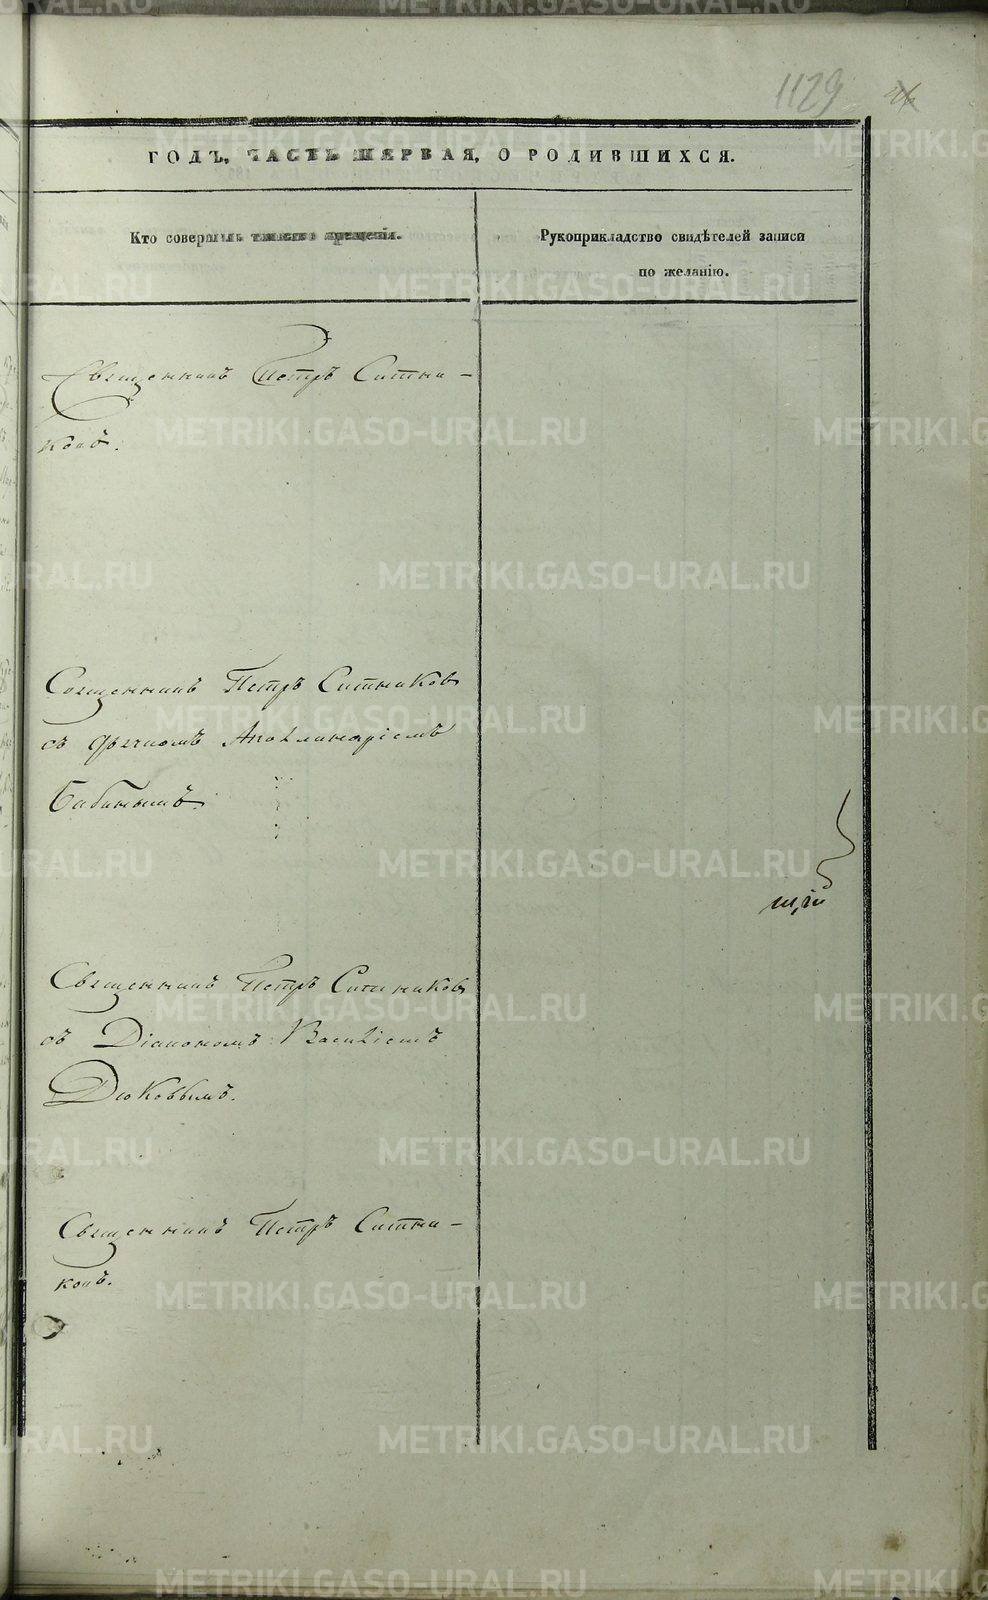 1129
ГОДЪ, ЧАСТЬ ПЕРВАЯ, О РОДИВШИХСЯ.
Кто совершалъ таинство крещенія.
Рукоприкладство свидѣтелей записи
по желанію.
Священникъ Петръ Ситни-
ковъ.
Священникъ Петръ Ситниковъ
съ дьячкомъ Аполлинаріемъ
Бабинымъ.
щій
Священникъ Петръ Ситниковъ
съ Діакономъ Василіемъ
Дюковымъ.
Священникъ Петръ Ситни-
ковъ.
METRIKI.GASO-URAL.RU